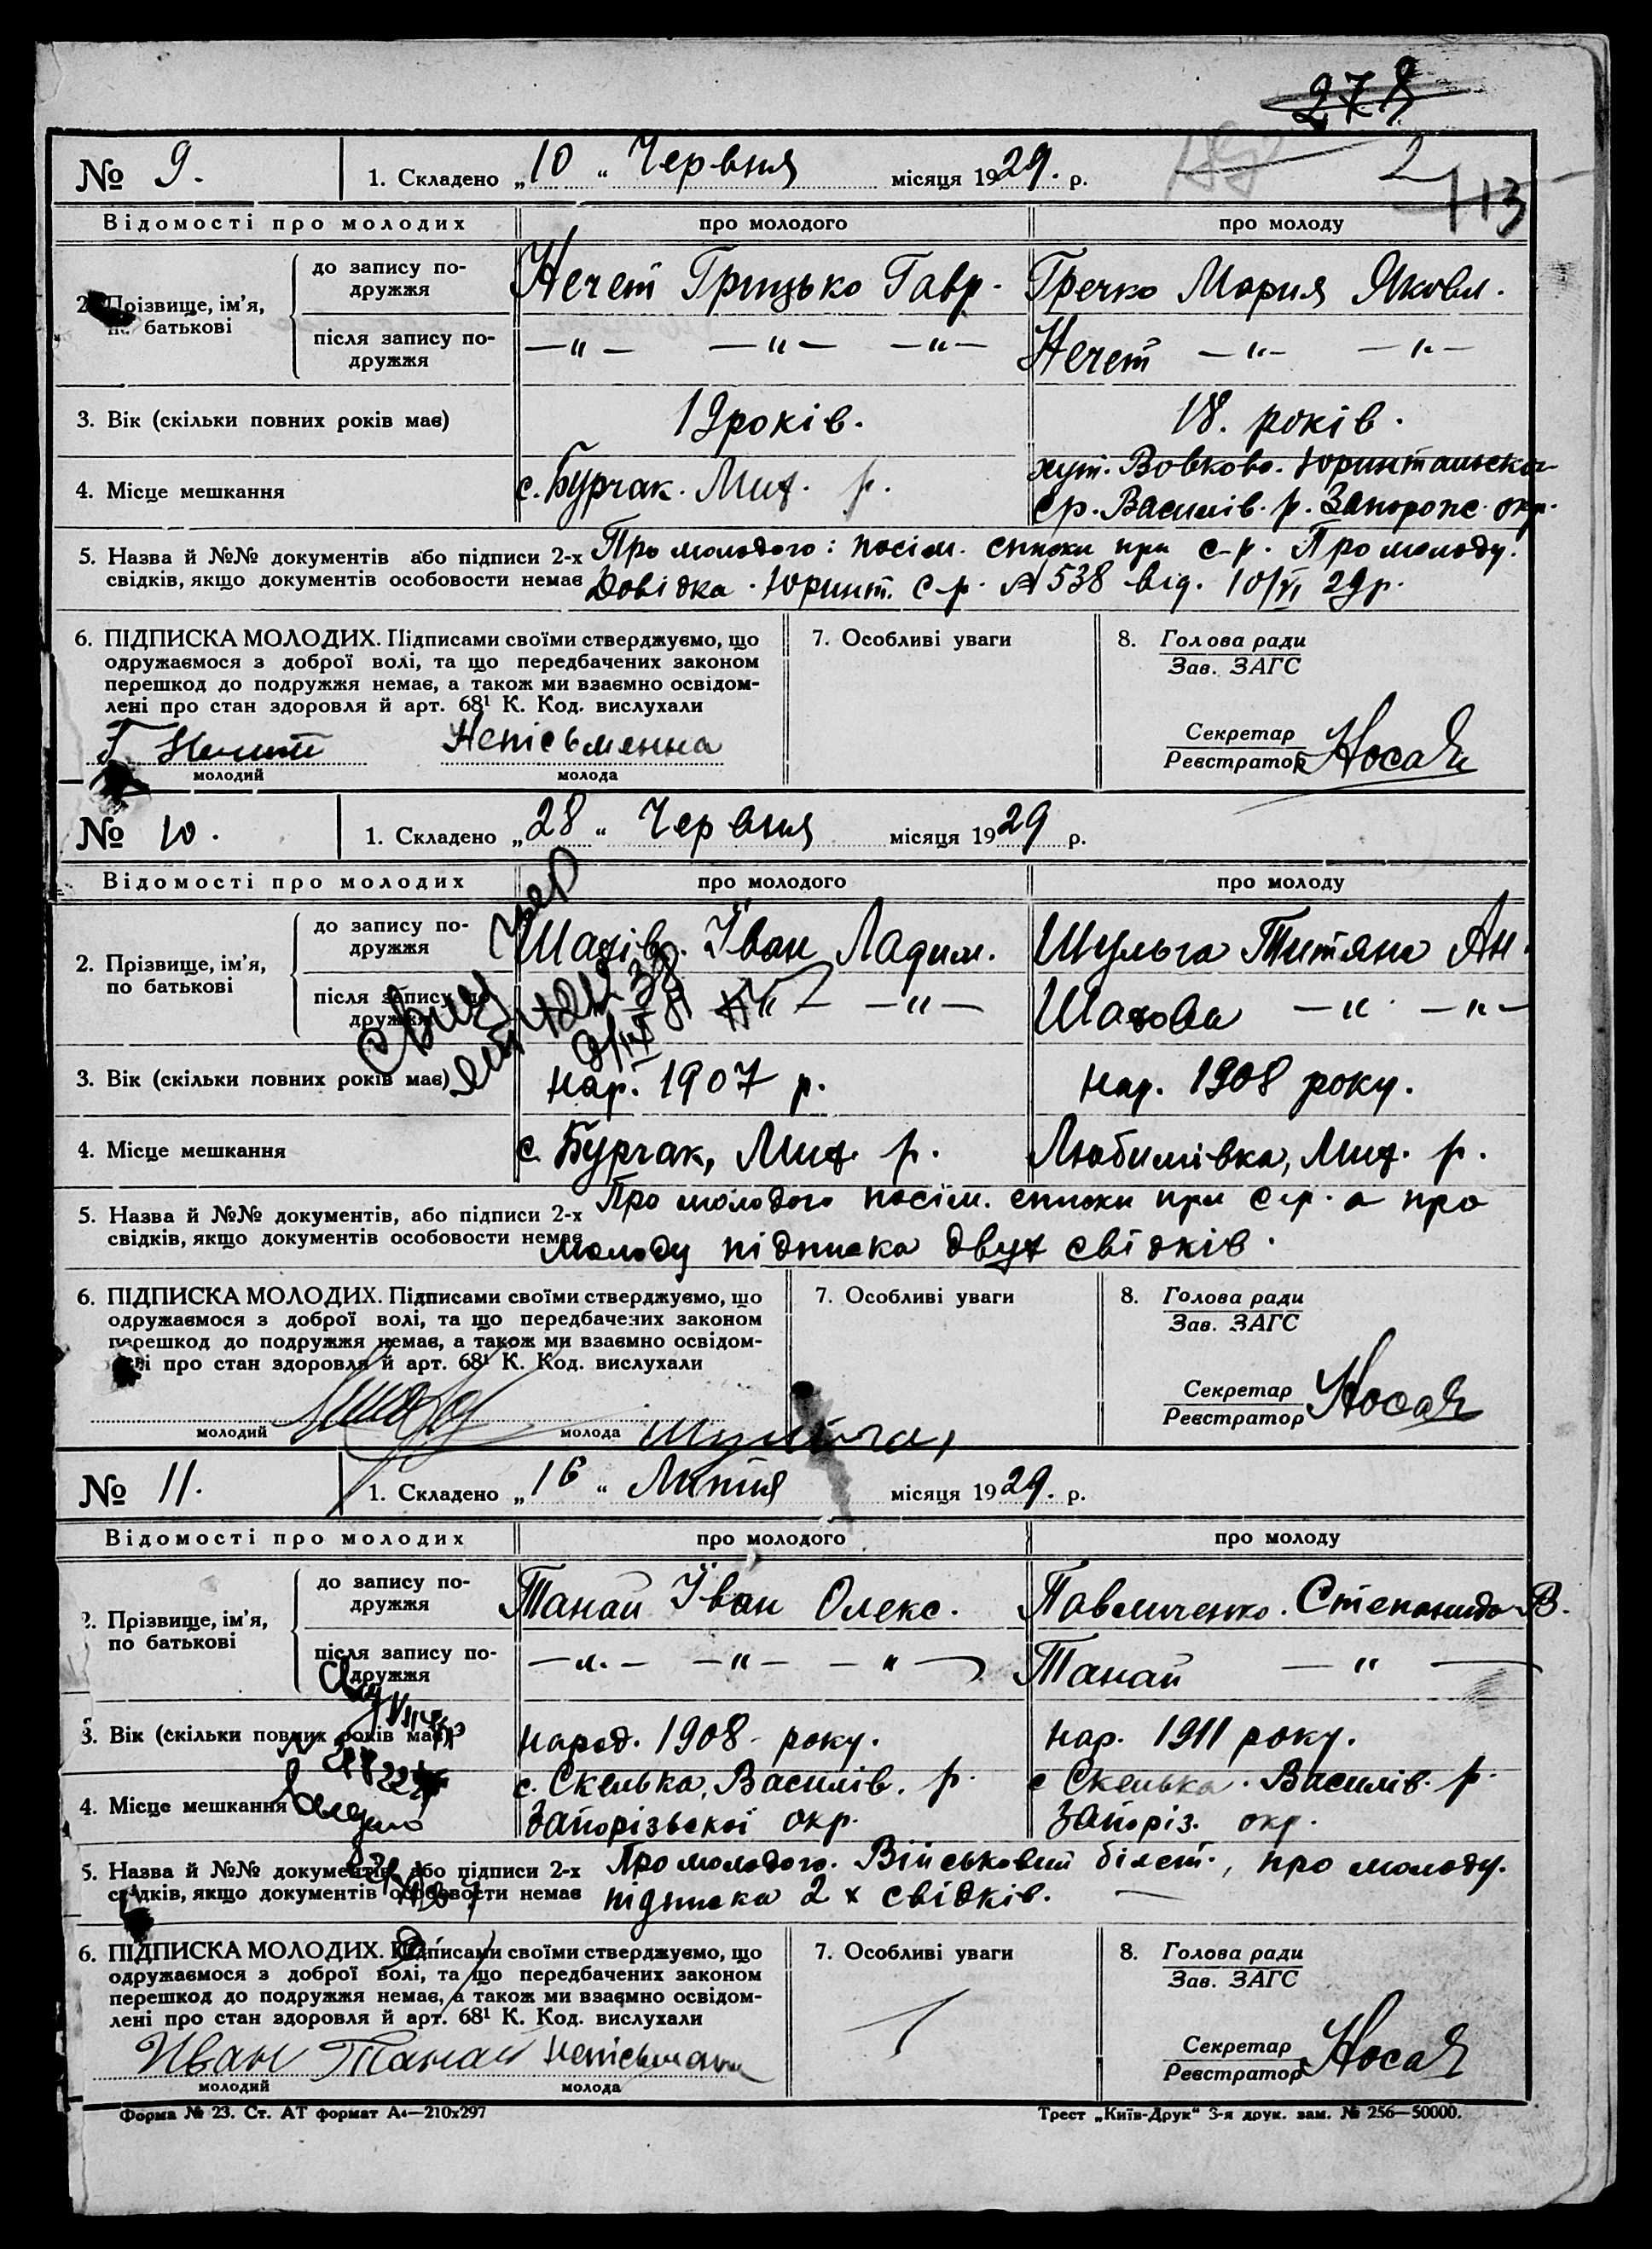 278
2
113
№ 9. 1. Складено „10“ Червня місяця 1929. р.
Відомості про молодих про молодого про молоду
2. Прізвище, ім’я, по батькові
до запису подружжя Нечет Грицько Гавр. Гречко Мария Яковл.
після запису подружжя —"— —"— —"— Нечет —"— —"—
3. Вік (скільки повних років має) 19 років. 18. років.
4. Місце мешкання с. Бурчак. Мих. р. хут. Вовково. Юринтальська
с р. Василів. р. Запорож. окр.
5. Назва й №№ документів або підписи 2-х Про молодого: посім. списки при с-р. Про молоду.
свідків, якщо документів особовости немає Довідка. Юринт. с-р. № 538 від. 10/VI 29 р.
6. ПІДПИСКА МОЛОДИХ. Підписами своїми стверджуємо, що 7. Особливі уваги 8. Голова ради
одружаємося з доброї волі, та що передбачених законом Зав. ЗАГС
перешкод до подружжя немає, а також ми взаємно освідом-
лені про стан здоровля й арт. 68¹ К. Код. вислухали
Г Нечит Непісьменна Секретар
молодий молода Реєстратор Носач
№ 10. 1. Складено „28“ Червня місяця 1929 р.
Відомості про молодих про молодого про молоду
2. Прізвище, ім’я, по батькові
до запису подружжя Шахів. Їван Ладим. Шульга Титяна Ан.
після запису подружжя —"— —"— Шахова —"— —"—
3. Вік (скільки повних років має) нар. 1907 р. нар. 1908 року.
4. Місце мешкання с. Бурчак, Мих. р. Любимівка, Мих. р.
5. Назва й №№ документів, або підписи 2-х Про молодого посім. списки при с-р. а про
свідків, якщо документів особовости немає молоду підписка двух свідків.
6. ПІДПИСКА МОЛОДИХ. Підписами своїми стверджуємо, що 7. Особливі уваги 8. Голова ради
одружаємося з доброї волі, та що передбачених законом Зав. ЗАГС
перешкод до подружжя немає, а також ми взаємно освідом-
лені про стан здоровля й арт. 68¹ К. Код. вислухали
Секретар
Реєстратор Носач
молодий молода Шульга
№ 11. 1. Складено „16“ Липня місяця 1929. р.
Відомості про молодих про молодого про молоду
2. Прізвище, ім’я, по батькові
до запису подружжя Танан Їван Олекс. Павличенко. Степанида В.
після запису подружжя —"— —"— —"— Танан —"—
3. Вік (скільки повних років має) народ. 1908 року. нар. 1911 року.
4. Місце мешкання с. Скелька, Василів. р. с Скелька. Василів. р.
Запорізької окр. Запоріз. окр.
5. Назва й №№ документів, або підписи 2-х Про молодого. Військовий білет., про молоду.
свідків, якщо документів особовости немає підписка 2 х свідків.
6. ПІДПИСКА МОЛОДИХ. Підписами своїми стверджуємо, що 7. Особливі уваги 8. Голова ради
одружаємося з доброї волі, та що передбачених законом Зав. ЗАГС
перешкод до подружжя немає, а також ми взаємно освідом-
лені про стан здоровля й арт. 68¹ К. Код. вислухали
Иван Танан непісьменна Секретар
молодий молода Реєстратор Носач
Форма № 23. Ст. АТ формат А4—210х297 Трест „Київ-Друк“ 3-я друк. зам. № 256—50000.